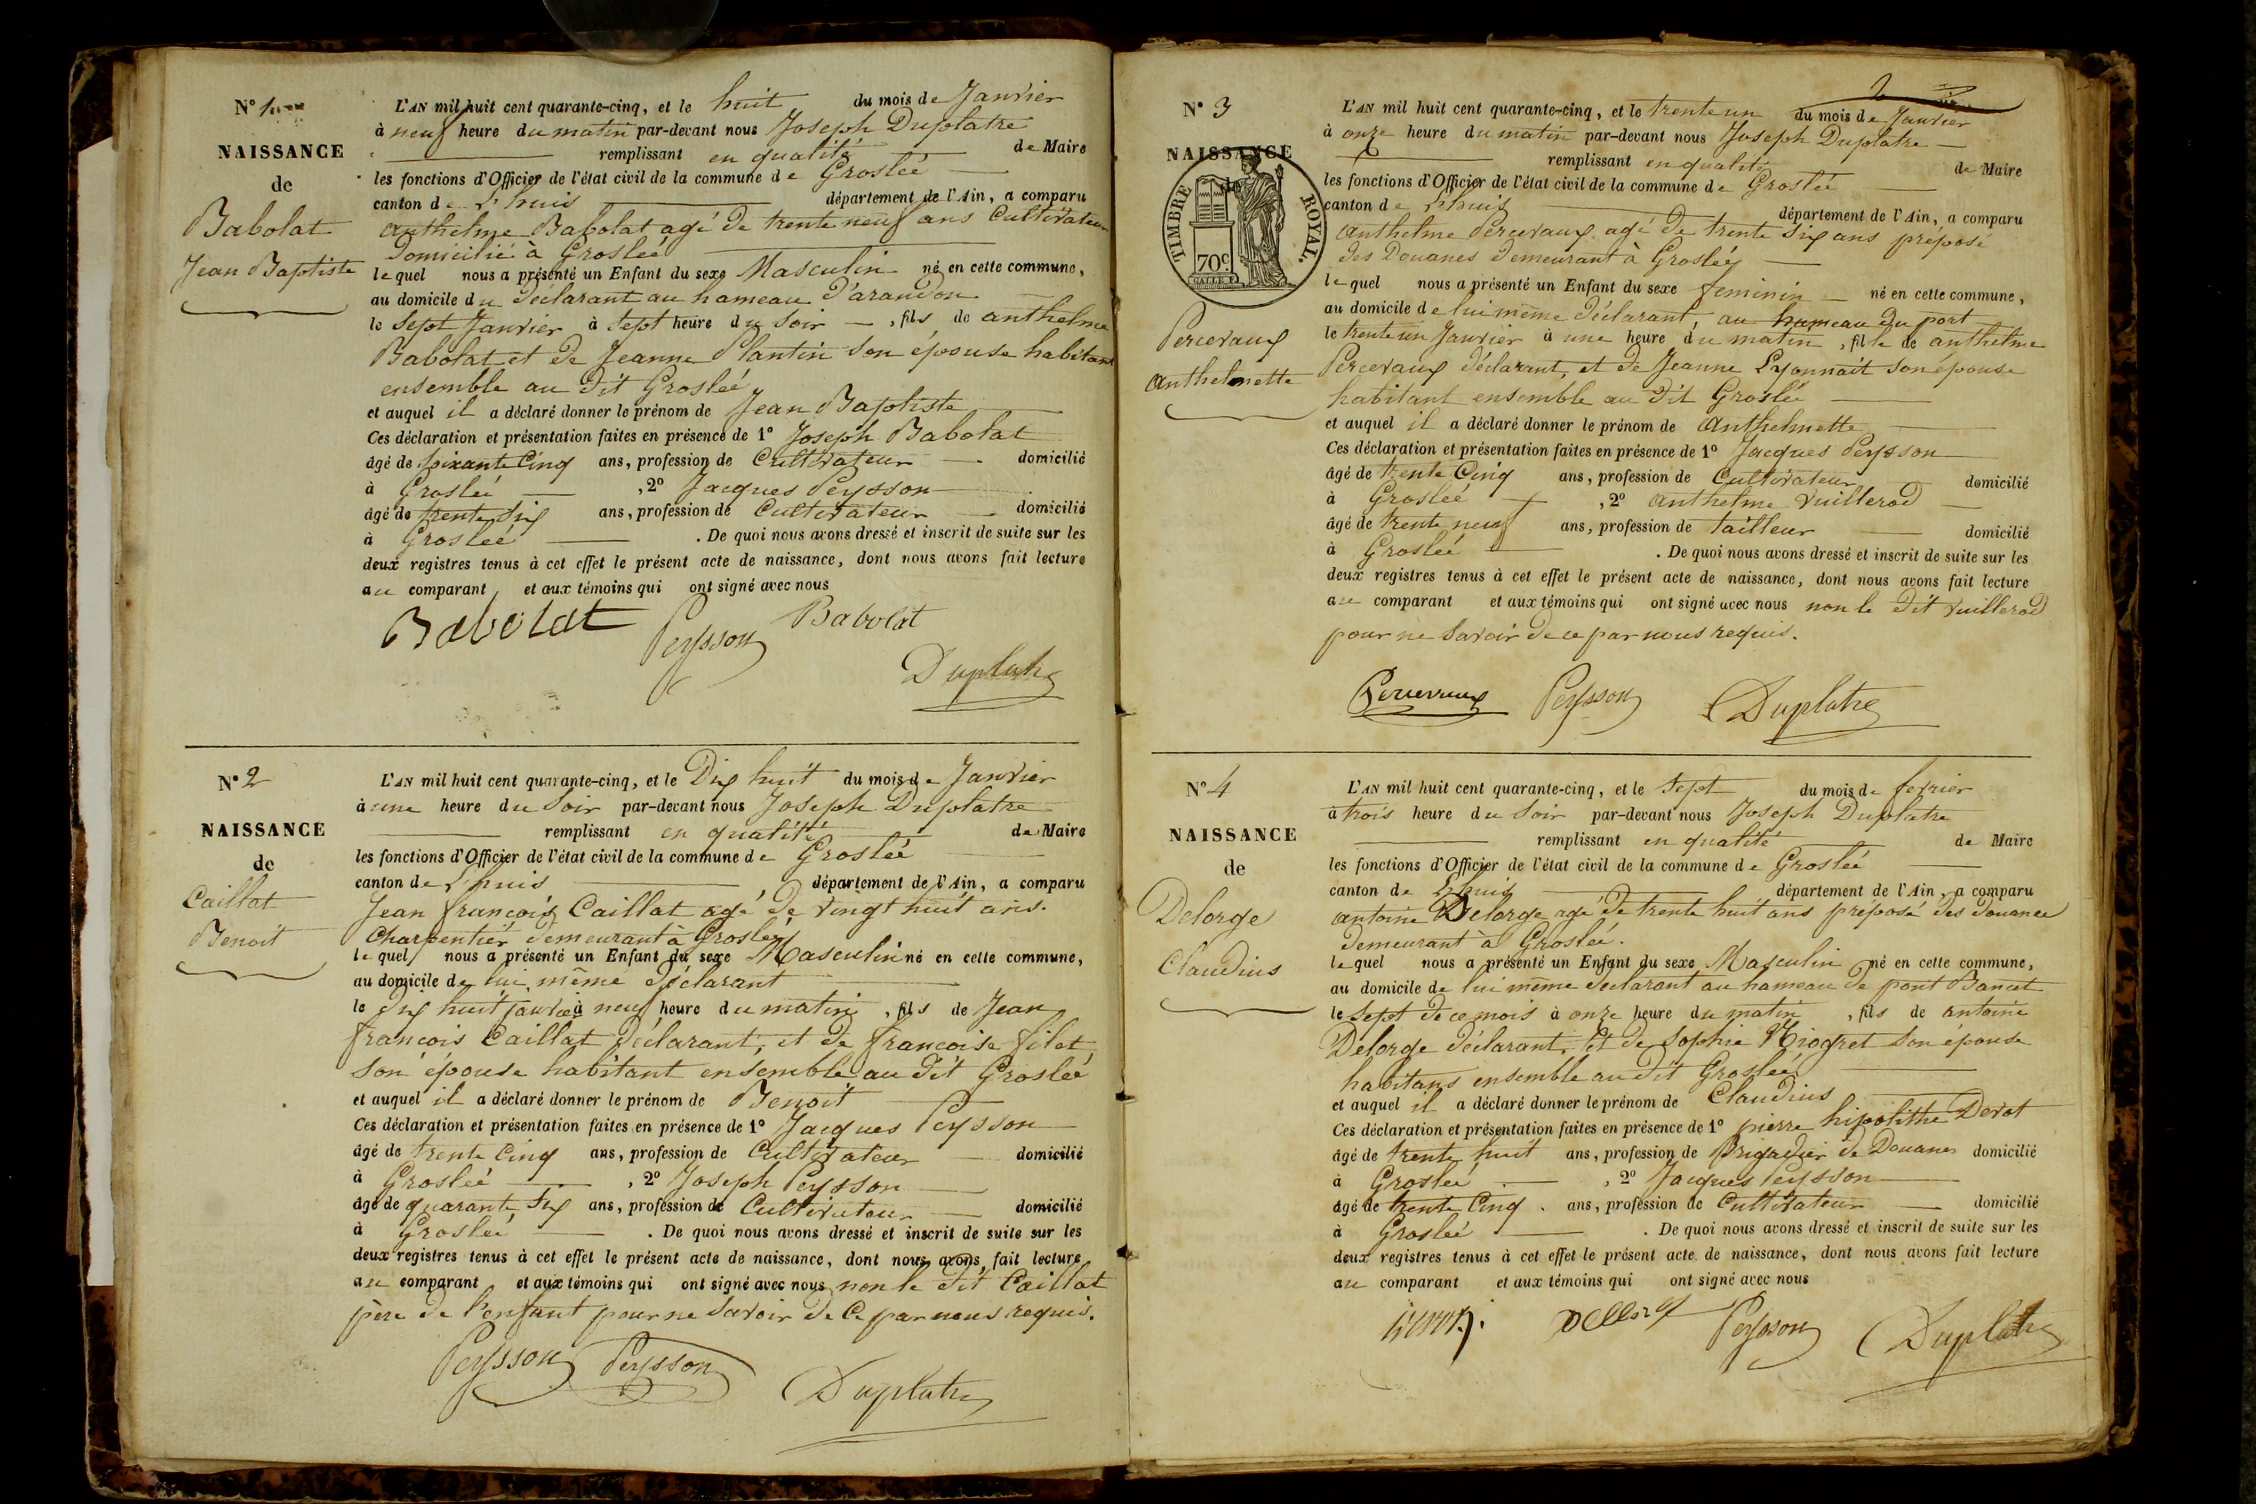 N° 1er
NAISSANCE
de
Babolat
Jean Baptiste
L'AN mil huit cent quarante-cinq, et le huit du mois de Janvier
à neuf heure du matin par-devant nous Joseph Duplatre
remplissant en qualité de Maire
les fonctions d'Officier de l'état civil de la commune de Groslée
canton de L'huis département de l'Ain, a comparu
anthelme Babolat agé de trente neuf ans Cultivateur
Domicilié à Groslée
lequel nous a présenté un Enfant du sexe Masculin né en cette commune,
au domicile du déclarant au hameau d'arandon
le Sept Janvier à Sept heure du Soir, fils de anthelme
Babolat et de Jeanne Plantin Son épouse habitant
ensemble au dit Groslée
et auquel il a déclaré donner le prénom de Jean Baptiste
Ces déclaration et présentation faites en présence de 1° Joseph Babolat
âgé de Soixante Cinq ans, profession de Cultivateur domicilié
à Groslée, 2° Jacques Peysson
âgé de trente Six ans, profession de Cultivateur domicilié
à Groslée. De quoi nous avons dressé et inscrit de suite sur les
deux registres tenus à cet effet le présent acte de naissance, dont nous avons fait lecture
au comparant et aux témoins qui ont signé avec nous
Babolat Peysson Babolat
Duplatre
N° 2
NAISSANCE
de
Caillat
Benoit
L'AN mil huit cent quarante-cinq, et le Dix huit du mois de Janvier
à une heure du Soir par-devant nous Joseph Duplatre
remplissant en qualité de Maire
les fonctions d'Officier de l'état civil de la commune de Groslée
canton de L'huis département de l'Ain, a comparu
Jean françois Caillat agé de vingt huit ans.
Charpentier demeurant à Groslée
lequel nous a présenté un Enfant du sexe Masculin né en cette commune,
au domicile de lui même déclarant
le dix huit janvier à neuf heure du matin, fils de Jean
françois Caillat déclarant, et de françoise filet
Son épouse habitant ensemble au dit Groslée
et auquel il a déclaré donner le prénom de Benoit
Ces déclaration et présentation faites en présence de 1° Jacques Peysson
âgé de trente Cinq ans, profession de Cultivateur domicilié
à Groslée, 2° Joseph Peysson
âgé de quarante Six ans, profession de Cultivateur domicilié
à Groslée. De quoi nous avons dressé et inscrit de suite sur les
deux registres tenus à cet effet le présent acte de naissance, dont nous avons fait lecture
au comparant et aux témoins qui ont signé avec nous non le dit Caillat
père de l'enfant pour ne Savoir de Ce par nous requis.
Peysson Peysson
Duplatre
2
N° 3
NAISSANCE
TIMBRE ROYAL.
70c
Percevaux
Anthelmette
L'AN mil huit cent quarante-cinq, et le trente un du mois de Janvier
à onze heure du matin par-devant nous Joseph Duplatre
remplissant en qualité de Maire
les fonctions d'Officier de l'état civil de la commune de Groslée
canton de L'huis département de l'Ain, a comparu
Anthelme Percevaux agé de trente Six ans préposé
des Douanes demeurant à Groslée
lequel nous a présenté un Enfant du sexe feminin né en cette commune,
au domicile de lui même déclarant, au hameau du port
le trente un Janvier à une heure du matin, fille de anthelme
Percevaux déclarant, et de Jeanne Lyonnait son épouse
habitant ensemble au dit Groslée
et auquel il a déclaré donner le prénom de Anthelmette
Ces déclaration et présentation faites en présence de 1° Jacques Peysson
âgé de trente Cinq ans, profession de Cultivateur domicilié
à Groslée, 2° anthelme Vuillerod
âgé de trente neuf ans, profession de tailleur domicilié
à Groslée. De quoi nous avons dressé et inscrit de suite sur les
deux registres tenus à cet effet le présent acte de naissance, dont nous avons fait lecture
au comparant et aux témoins qui ont signé avec nous non le dit Vuillerod
pour ne Savoir de ce par nous requis.
Percevaux Peysson Duplatre
N° 4
NAISSANCE
de
Delorge
Claudius
L'AN mil huit cent quarante-cinq, et le Sept du mois de fevrier
à trois heure du Soir par-devant nous Joseph Duplatre
remplissant en qualité de Maire
les fonctions d'Officier de l'état civil de la commune de Groslée
canton de L'huis département de l'Ain, a comparu
antoine Delorge agé de trente huit ans préposé des douanes
demeurant à Groslée.
lequel nous a présenté un Enfant du sexe Masculin né en cette commune,
au domicile de lui même déclarant au hameau de pont Bancet
le Sept de ce mois à onze heure du matin, fils de antoine
Delorge déclarant, et de Sophie Miogret Son épouse
habitans ensemble au dit Groslée
et auquel il a déclaré donner le prénom de Claudius
Ces déclaration et présentation faites en présence de 1° pierre hipolithe Devot
âgé de trente huit ans, profession de Brigadier de Douanes domicilié
à Groslée, 2° Jacques Peysson
âgé de trente Cinq ans, profession de Cultivateur domicilié
à Groslée. De quoi nous avons dressé et inscrit de suite sur les
deux registres tenus à cet effet le présent acte de naissance, dont nous avons fait lecture
au comparant et aux témoins qui ont signé avec nous
Peysson Duplatre